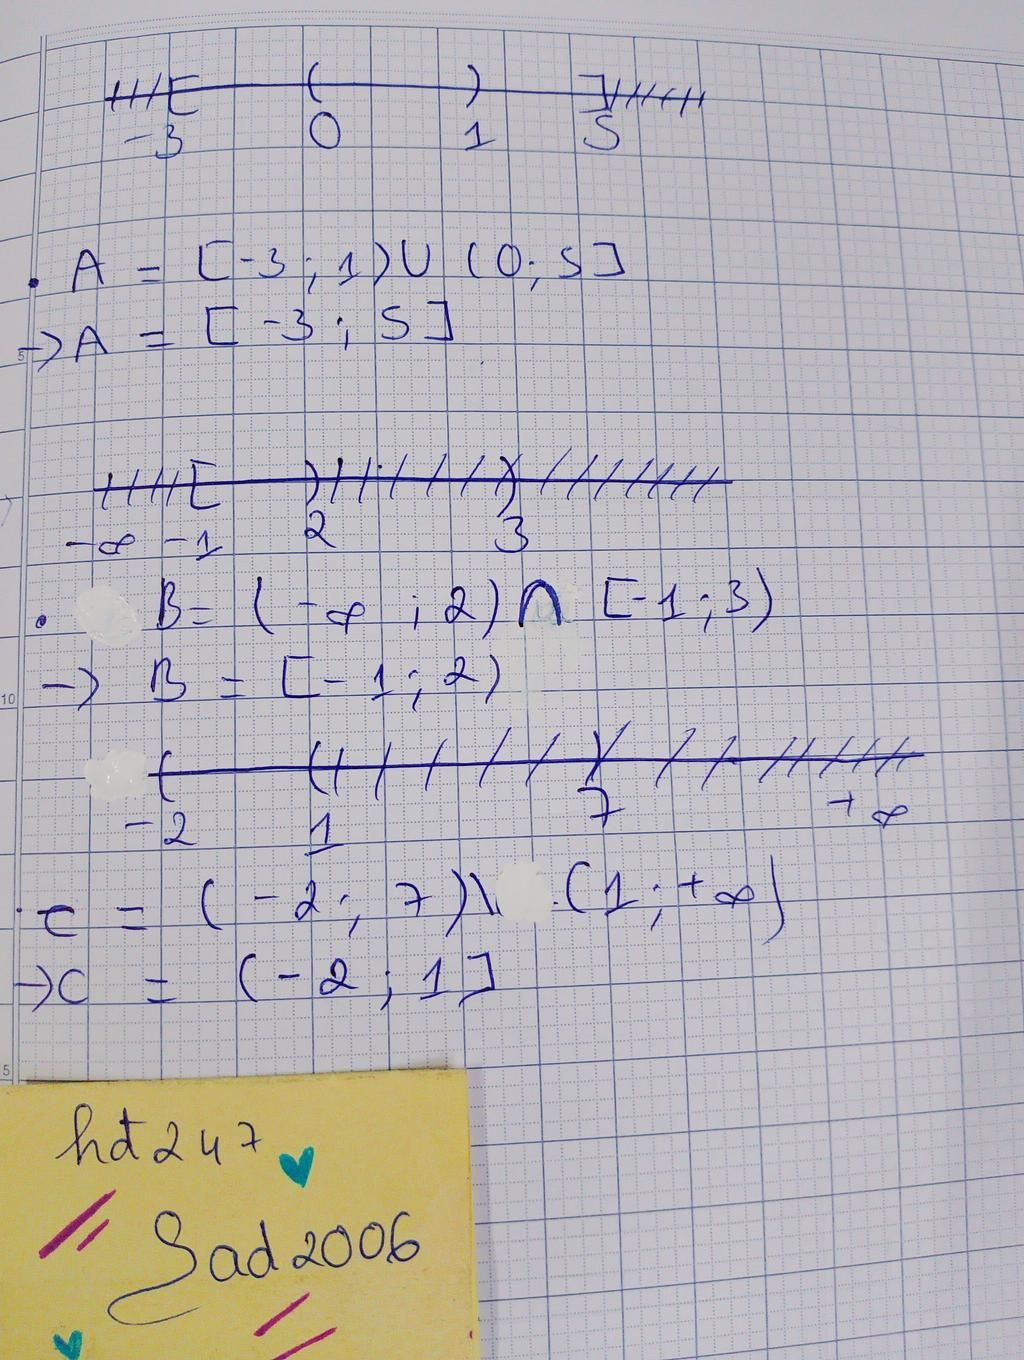 [ ( ) ]
-3 0 1 5
• A = [-3 ; 1) U (0 ; 5]
5
→ A = [-3 ; 5]
[ ) )
-∞ -1 2 3
• B = (-∞ ; 2) ∩ [-1 ; 3)
→ B = [-1 ; 2)
10
( ( )
-2 1 7 +∞
• C = (-2 ; 7) \ (1 ; +∞)
→ C = (-2 ; 1]
5
hd247
Sad2006